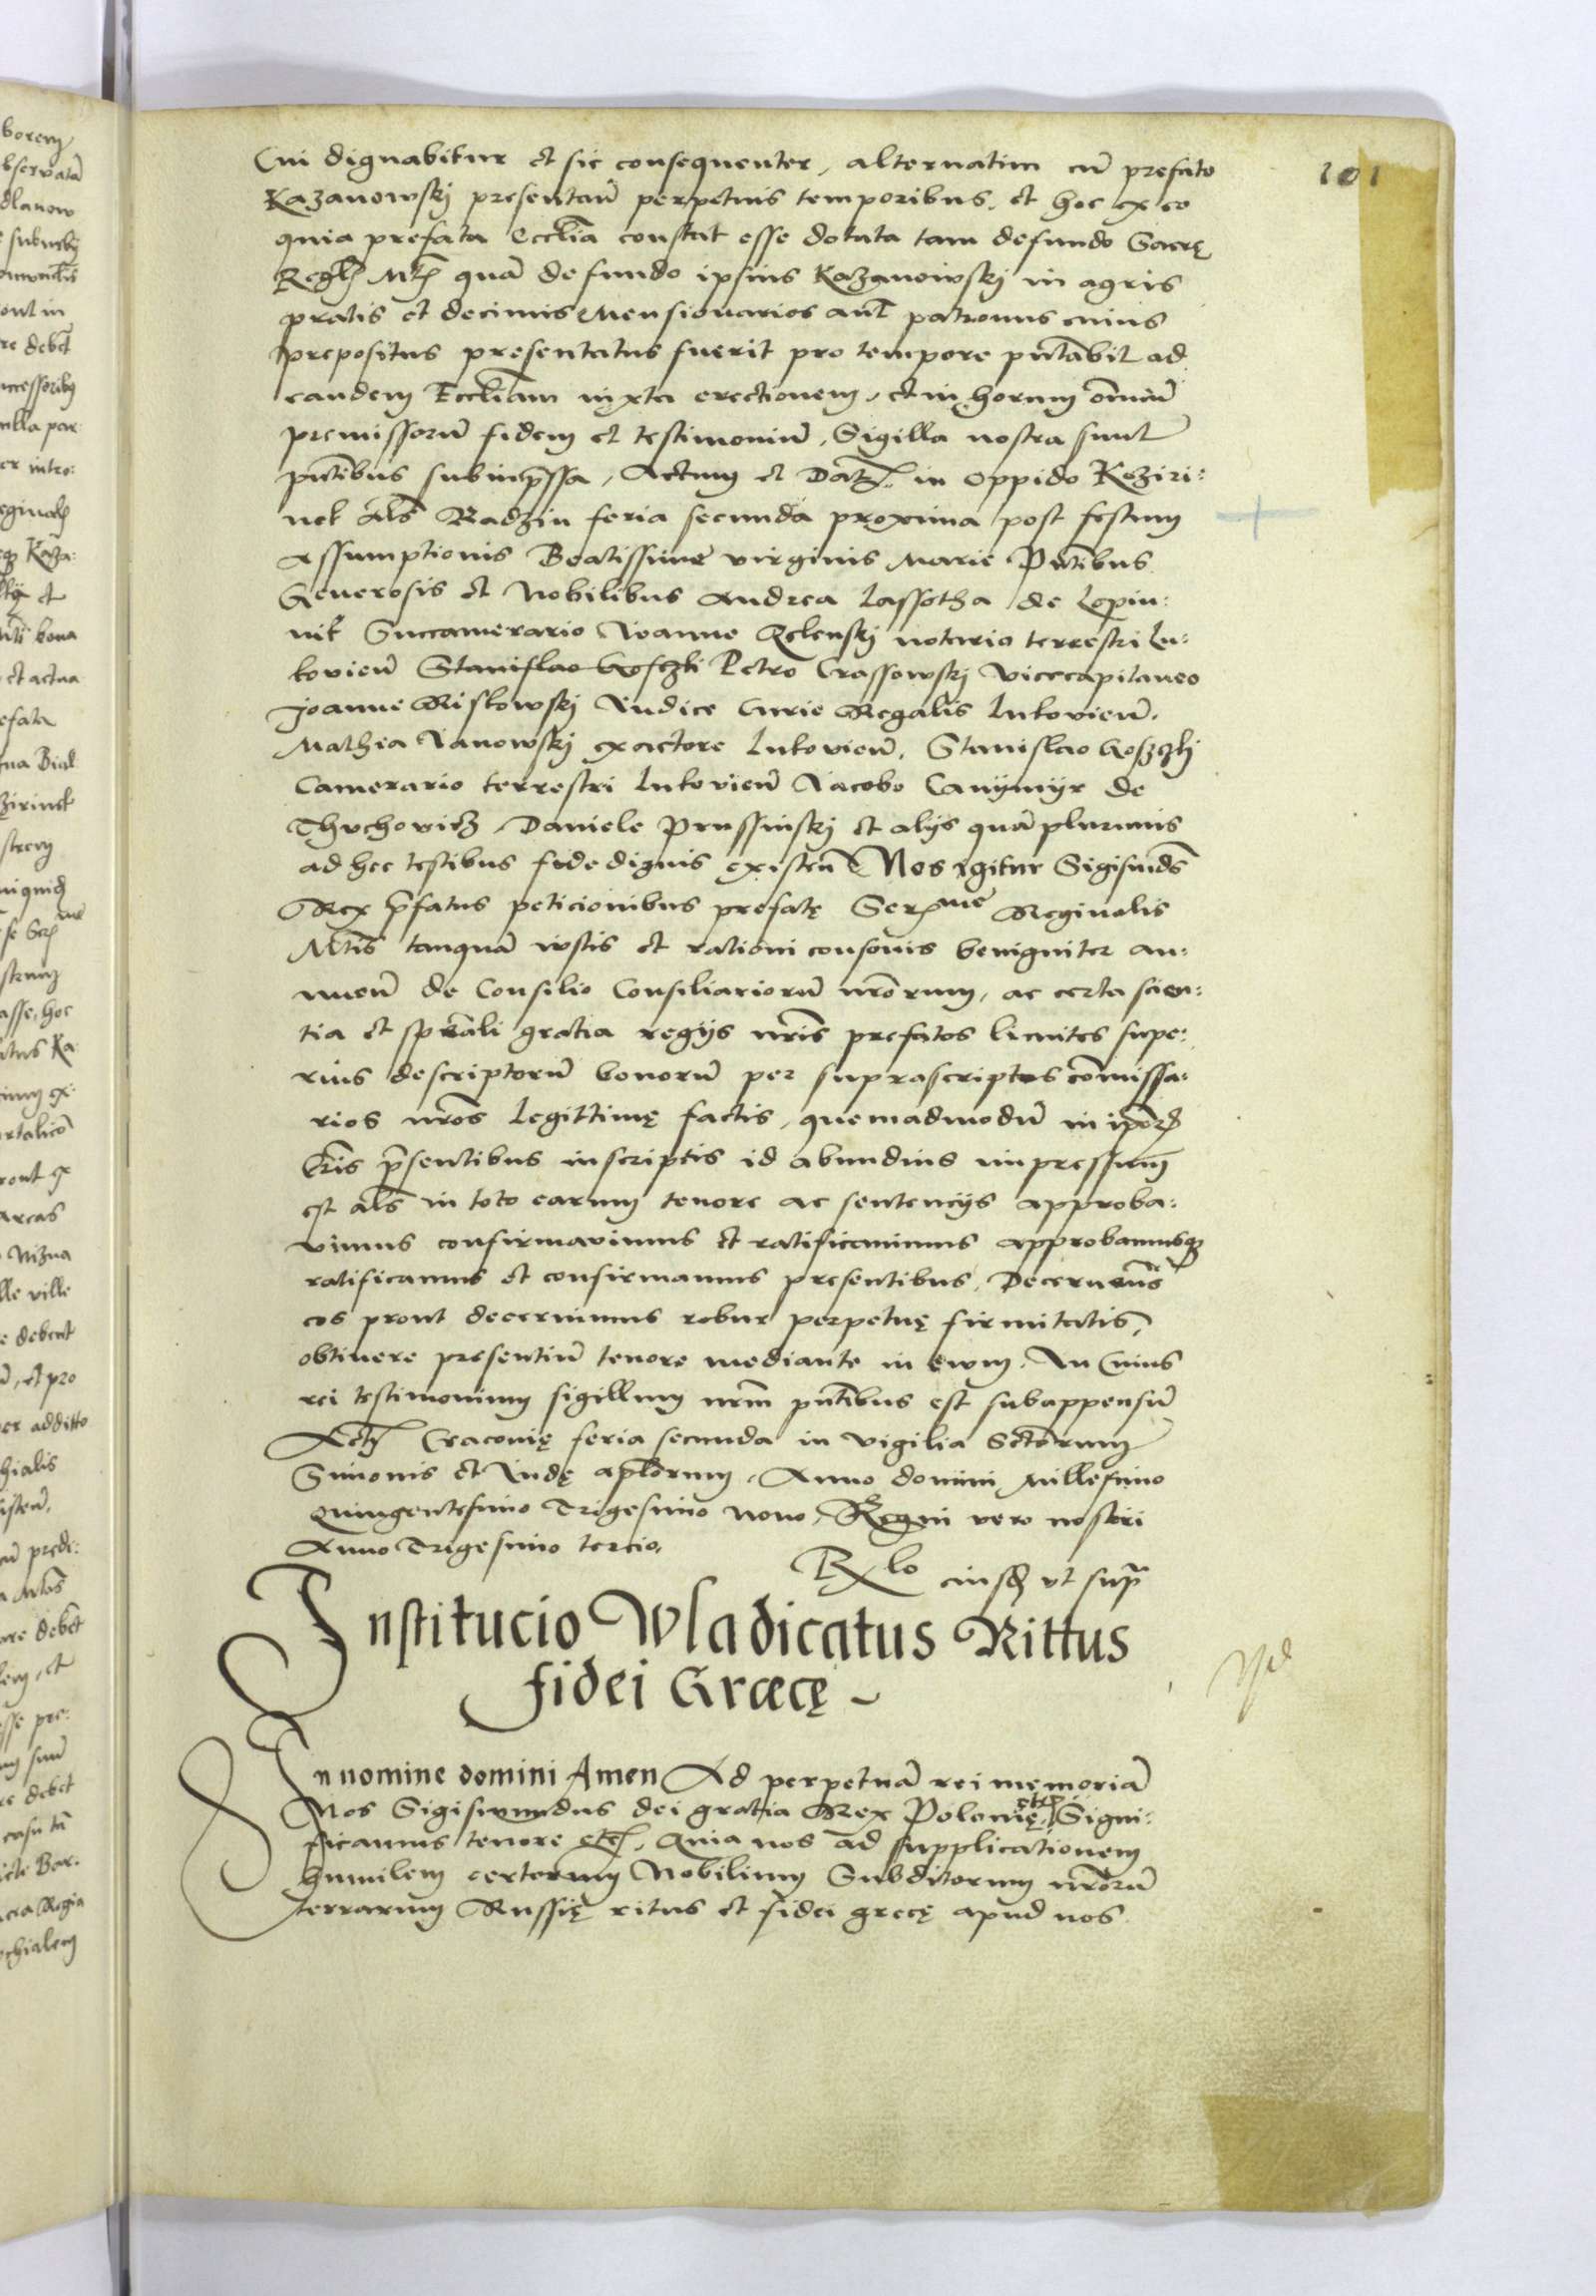 101
Cui dignabitur et sic consequenter, alternatim cū prefato
Kazanowskj presentaū perpetuis temporibus, et hoc ex eo
quia prefata Ecclīa constat esse dotata tam defundo Sacrę
Regl Mtis quā de fundo ipsius Kazanowskj in agris
pratis et decimis Mensionarios aut̄ patronus cuius
prepositus presentatus fuerit pro tempore pn̄tabit ad
eandem Eccliam iuxta erectionem, et in horum om̄iū
premissorū fidem et testimoniū, Sigilla nostra sunt
pn̄tibus subimp̄ssa, Actum et Dat. in oppido Koziri:
net als̄ Radzin feria secunda proxima post festum
Assumptionis Beatissime virginis Marie Pn̄tibus
Generosis et Nobilibus Andrea Lassotha de Lopin:
nik Succamerario Joanne Zelenskj notario terrestri Lu:
kovień Stanislao Koszki Petro Crassowskj vicecapitaneo
Joanne Miskowskj Judice Curie Regalis Lukovień.
Mathia Janowskj exactore Lukovień, Stanislao Koszczkj
Camerario terrestri Lukovień Jacobo Canymyr de
Thuchovicz, Daniele Prussinskj et alijs quāplurimis
ad hec testibus fide dignis existeñ Nos igitur Sigismūds
Rex p̄fatus peticionibus prefatę Serᵐᵉ Reginalis
Mtis̄ tanquā iustis et rationi consonis benigniter an:
nueñ de Consilio Consiliariorū nr̄orum, ac certa scien:
tia et spēali gratia regijs nr̄is prefatos limites supe:
rius descriptorū bonorū per suprascriptos com̄issa:
rios nr̄os legittimę factis, quemadmodū in ipōrū
lr̄is p̄sentibus inscriptis id abundius impressum
est als̄ in toto earum tenore ac sentencijs approba:
vimus confirmavimus et ratificavimus approbamusq
ratificamus et confirmamus presentibus, Decernentes
eos prout decernimus robur perpetuę firmitatis,
obtinere presentiū tenore mediante in ewm. In Cuius
rei testimonium sigillum nr̄m pn̄tibus est subappensū
Act Cracovię feria secunda in vigilia Sctōrum
Simonis et Judę apl̄orum, Anno domini Millesimo
Quingentesimo Trigesimo Nono, Regni vero nostri
Anno Trigesimo tercio,
Rlo eiusd ut sup̄
Institucio Wladicatus Rittus
fidei Græcę
In nomine domini Amen Ad perpetuā rei memoriā
Nos Sigismundus dei gratia Rex Polonię etc Signi:
ficamus tenore etc, Quia nos ad supplicationem
humilem certorum Nobilium Subditorum nr̄orū
terrarum Russię ritus et fidei grecę apud nos